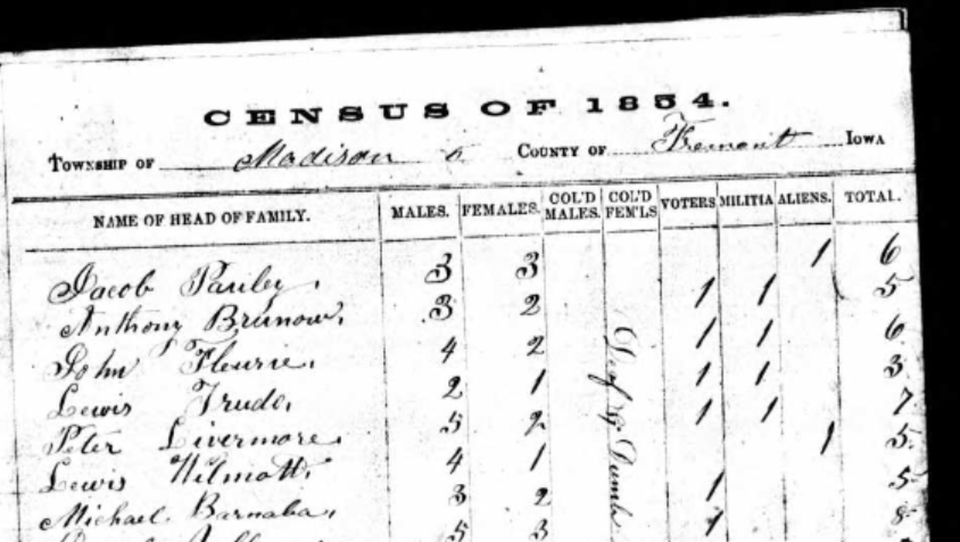 CENSUS OF 1854.
TOWNSHIP OF Madison COUNTY OF Fremont IOWA
NAME OF HEAD OF FAMILY. MALES. FEMALES. COL'D MALES. COL'D FEM'LS VOTERS MILITIA ALIENS. TOTAL.
Jacob Pauley. 3 3 1 6
Anthony Brunow. 3 2 1 1 5
John Fleurie. 4 2 1 1 6
Lewis Trudo. 2 1 1 1 3
Peter Livermore. 5 2 1 1 7
Lewis Wilmott. 4 1 1 5
Michael Barnaba. 3 2 1 5
5 3 1 8
Deaf & Dumb